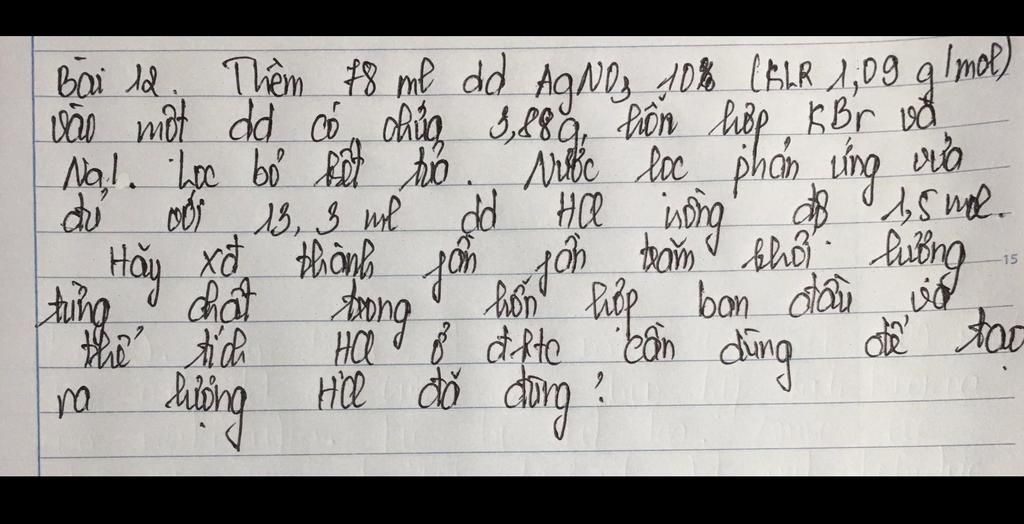 Bài 12. Thêm 78 ml dd AgNO3 10% (KLR 1,09 g/mol)
vào một dd có chứa 3,88g hỗn hợp KBr và
NaI. Lọc bỏ kết tủa. Nước lọc phản ứng vừa
đủ với 13,3 ml dd HCl nồng độ 1,5 mol.
Hãy xđ thành phần phần trăm khối lượng
từng chất trong hỗn hợp ban đầu và
thể tích HCl ở đktc cần dùng để tạo
ra lượng HCl đã dùng?
15